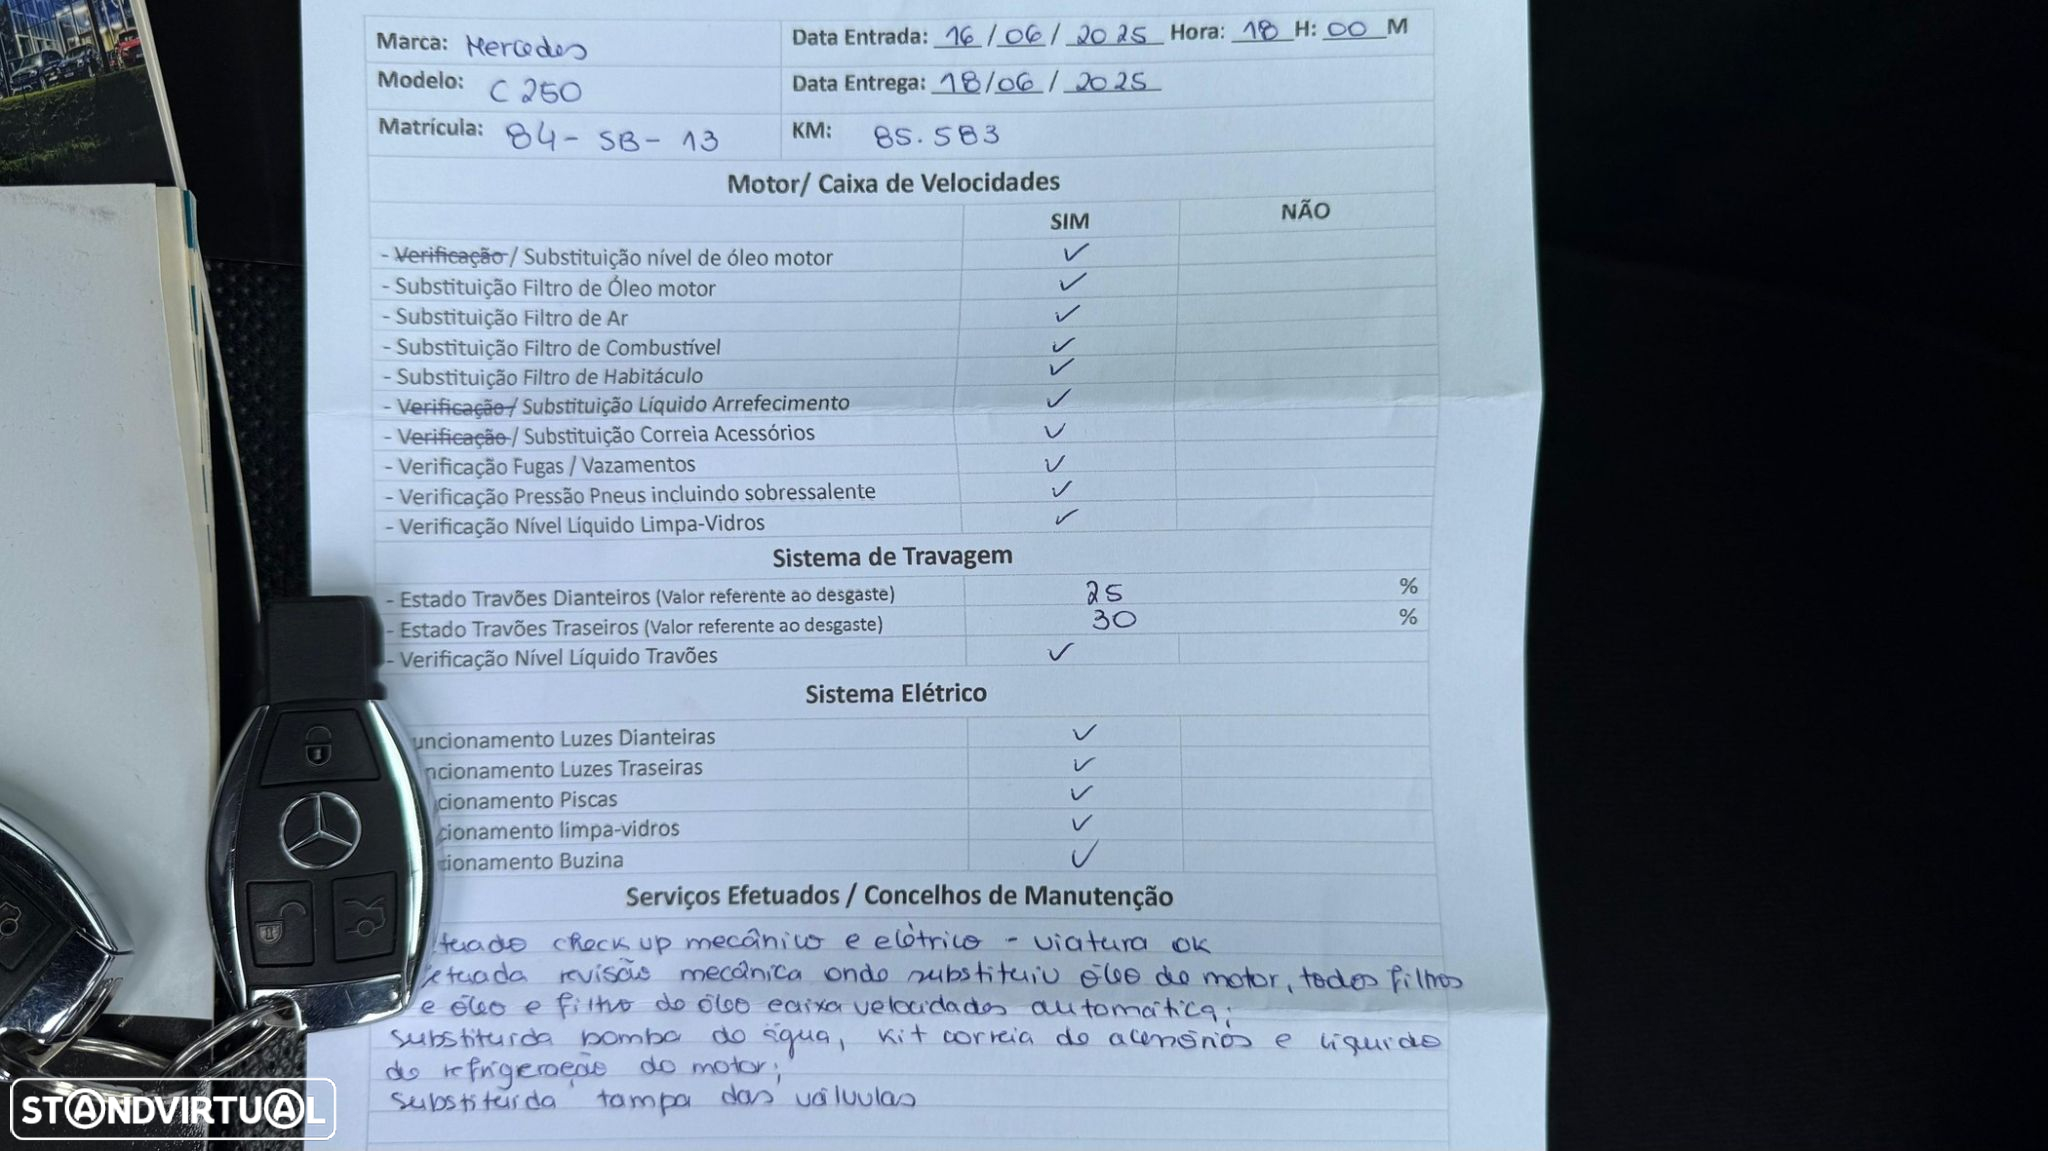 Marca: Mercedes
Data Entrada: 16/06/2025 Hora: 18 H: 00 M
Modelo: C 250
Data Entrega: 18/06/2025
Matrícula: 84-SB-13
KM: 85.583
Motor/ Caixa de Velocidades
SIM NÃO
- Verificação / Substituição nível de óleo motor ✓
- Substituição Filtro de Óleo motor ✓
- Substituição Filtro de Ar ✓
- Substituição Filtro de Combustível ✓
- Substituição Filtro de Habitáculo ✓
- Verificação / Substituição Líquido Arrefecimento ✓
- Verificação / Substituição Correia Acessórios ✓
- Verificação Fugas / Vazamentos ✓
- Verificação Pressão Pneus incluindo sobressalente ✓
- Verificação Nível Líquido Limpa-Vidros ✓
Sistema de Travagem
- Estado Travões Dianteiros (Valor referente ao desgaste) 25 %
- Estado Travões Traseiros (Valor referente ao desgaste) 30 %
- Verificação Nível Líquido Travões ✓
Sistema Elétrico
uncionamento Luzes Dianteiras ✓
ncionamento Luzes Traseiras ✓
cionamento Piscas ✓
cionamento limpa-vidros ✓
cionamento Buzina ✓
Serviços Efetuados / Concelhos de Manutenção
tuado check up mecânico e elétrico - viatura ok
etuada revisão mecânica onde substituiu óleo de motor, todos filtros
e óleo e filtro de óleo caixa velocidades automática;
substituida bomba de água, kit correia de acessórios e liquido
de refrigeração do motor;
substituida tampa das válvulas
STANDVIRTUAL